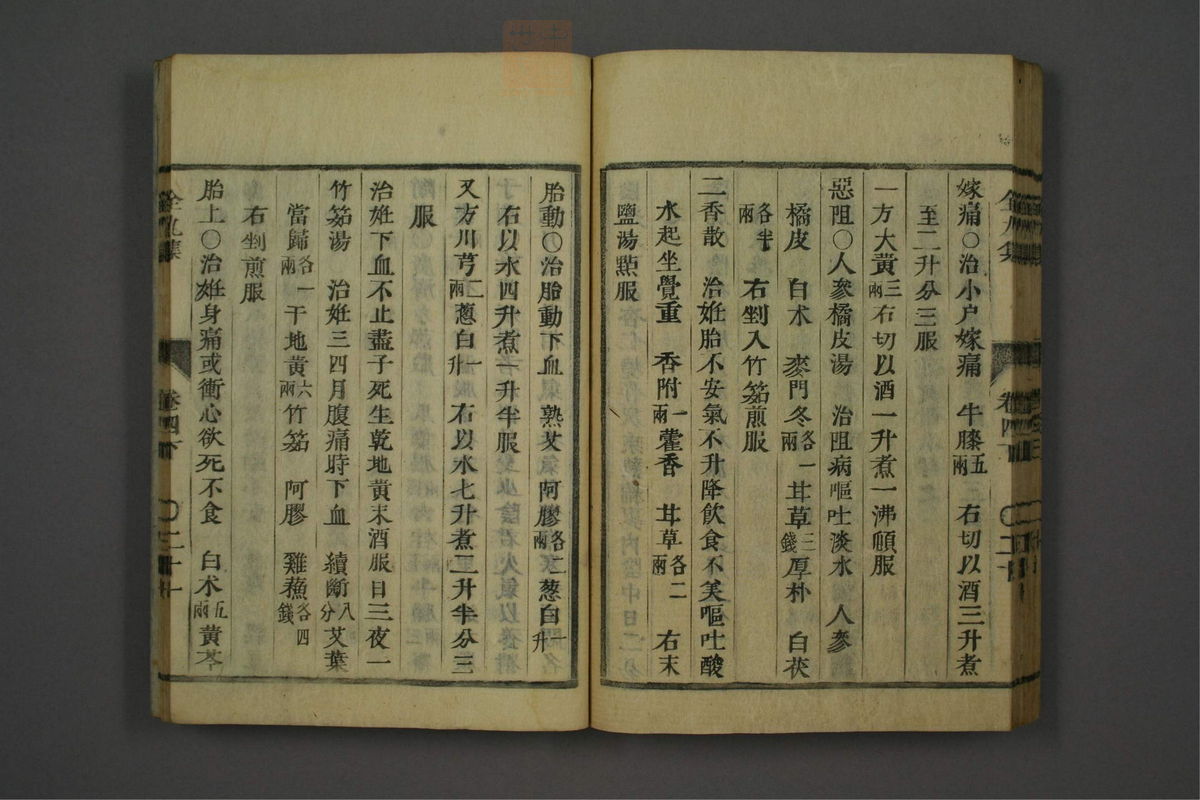 嫁痛○治小户嫁痛 牛膝五兩 右切以酒三升煮
至二升分三服
一方大黃三兩右切以酒一升煮一沸頓服
惡阻○人參橘皮湯 治阻病嘔吐淡水 人參
橘皮 白朮 麥門冬各一兩甘草三錢厚朴 白茯
各半兩 右剉入竹茹煎服
二香散 治姙胎不安氣不升降飲食不美嘔吐酸
水起坐覺重 香附一兩藿香 甘草各二兩 右末
鹽湯點服
胎動○治胎動下血 熟艾 阿膠各二兩葱白一升
右以水四升煮一升半服
又方川芎二兩葱白一升 右以水七升煮二升半分三
服
治姙下血不止盡子死生乾地黃末酒服日三夜一
竹茹湯 治姙三四月腹痛時下血 續斷八分艾葉
當歸各一兩干地黃六兩竹茹 阿膠 雞蘓各四錢
右剉煎服
胎上○治姙身痛或衝心欲死不食 白朮五兩黃芩
卷四下